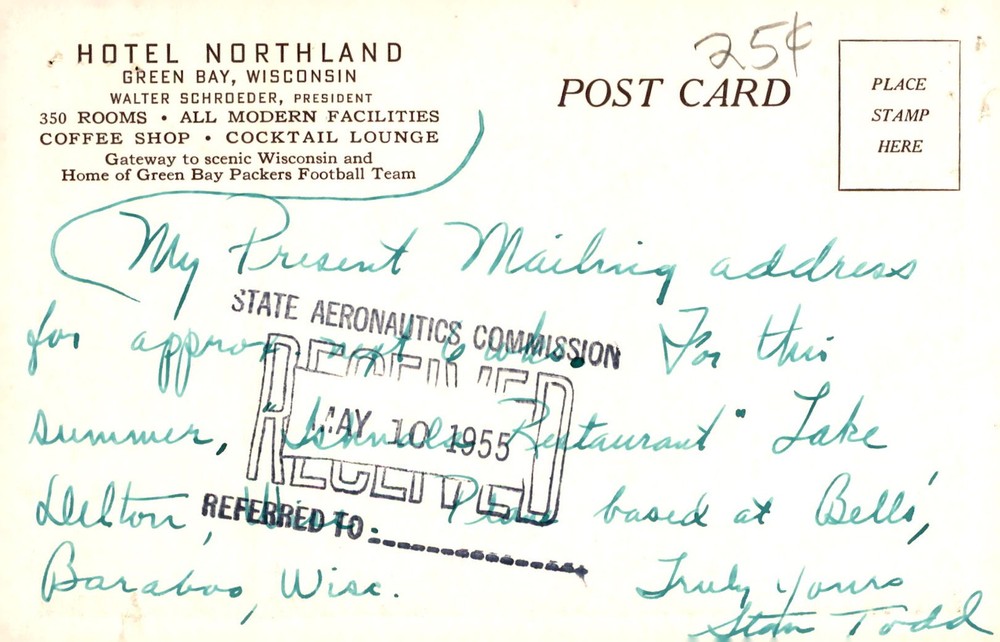 HOTEL NORTHLAND
GREEN BAY, WISCONSIN
WALTER SCHROEDER, PRESIDENT
350 ROOMS • ALL MODERN FACILITIES
COFFEE SHOP • COCKTAIL LOUNGE
Gateway to scenic Wisconsin and
Home of Green Bay Packers Football Team
25¢
POST CARD
PLACE
STAMP
HERE
My Present Mailing address
for approx. next 6 wks. For this
summer, " Restaurant" Lake
Delton, Wisc. Plane based at Bells',
Baraboo, Wisc.
Truly yours
Stan Todd
STATE AERONAUTICS COMMISSION
RECEIVED
MAY 10 1955
RECEIVED
REFERRED TO: